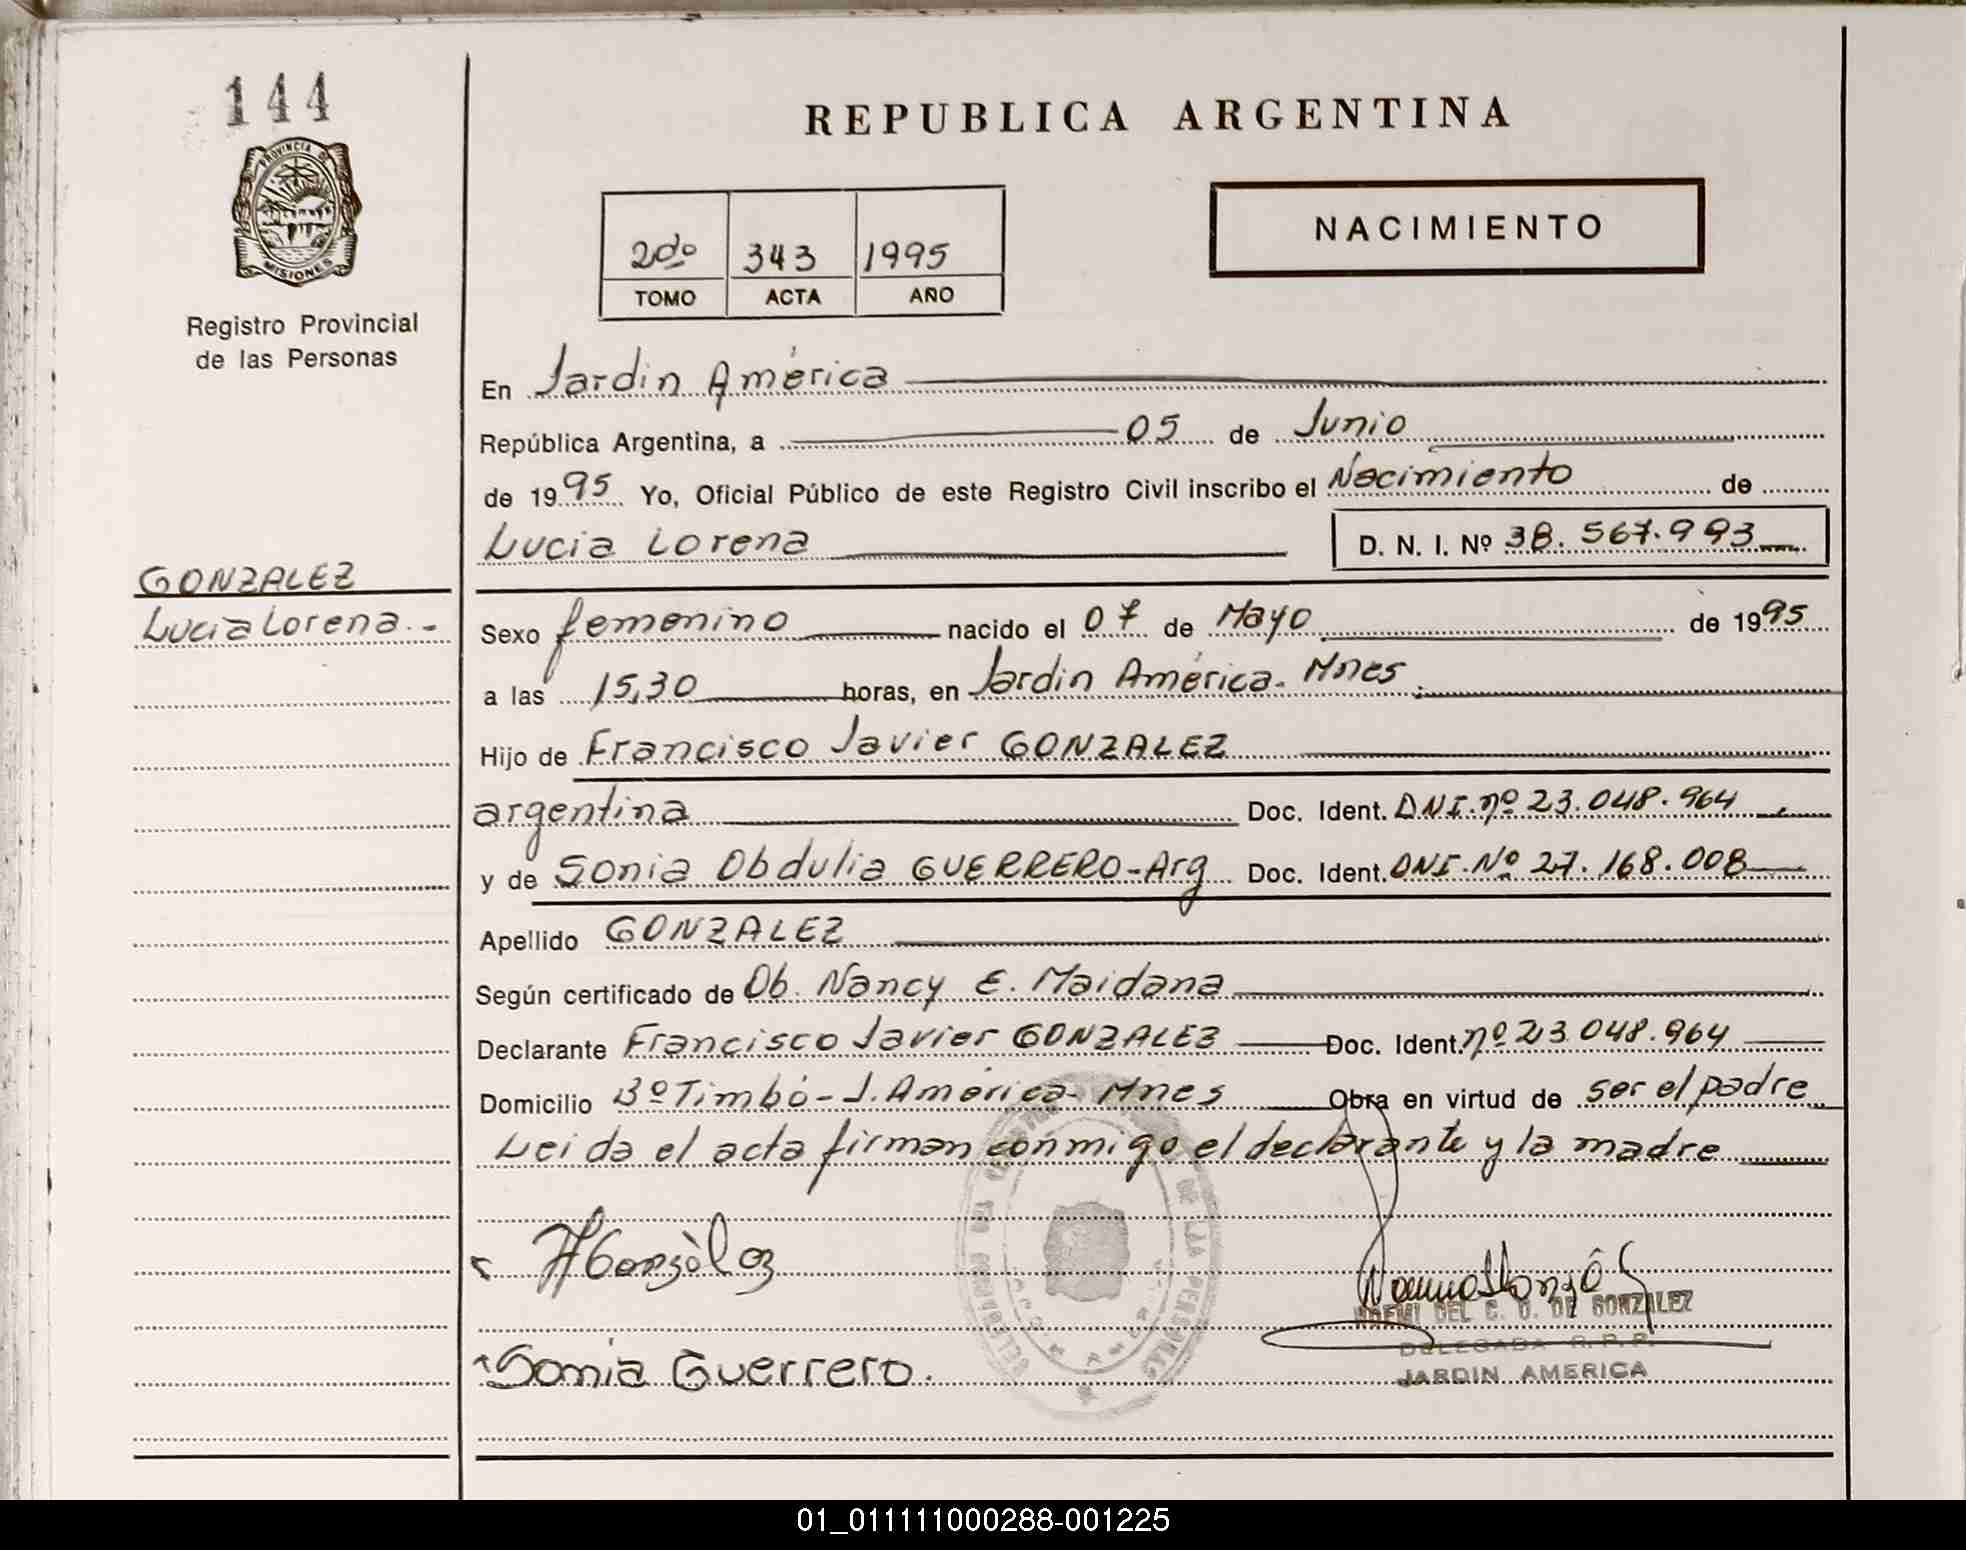 144
PROVINCIA DE
MISIONES
Registro Provincial
de las Personas
GONZALEZ
Lucia Lorena.-
REPUBLICA ARGENTINA
2do 343 1995
TOMO ACTA AÑO
NACIMIENTO
En Jardin América
República Argentina, a 05 de Junio
de 1995 Yo, Oficial Público de este Registro Civil inscribo el Nacimiento de
Lucia Lorena D. N. I. Nº 38.567.993
Sexo femenino nacido el 07 de Mayo de 1995
a las 15,30 horas, en Jardin América. Mnes.
Hijo de Francisco Javier GONZALEZ
argentina Doc. Ident. DNI. nº 23.048.964
y de Sonia Obdulia GUERRERO-Arg Doc. Ident. DNI. Nº 27.168.008
Apellido GONZALEZ
Según certificado de Ob. Nancy E. Maidana
Declarante Francisco Javier GONZALEZ Doc. Ident. nº 23.048.964
Domicilio Bº Timbó - J. América. Mnes Obra en virtud de ser el padre
Leida el acta firman conmigo el declarante y la madre
Sonia Guerrero.
NOEMI DEL C. D. DE GONZALEZ
DELEGADA R.P.P.
JARDIN AMERICA
01_011111000288-001225